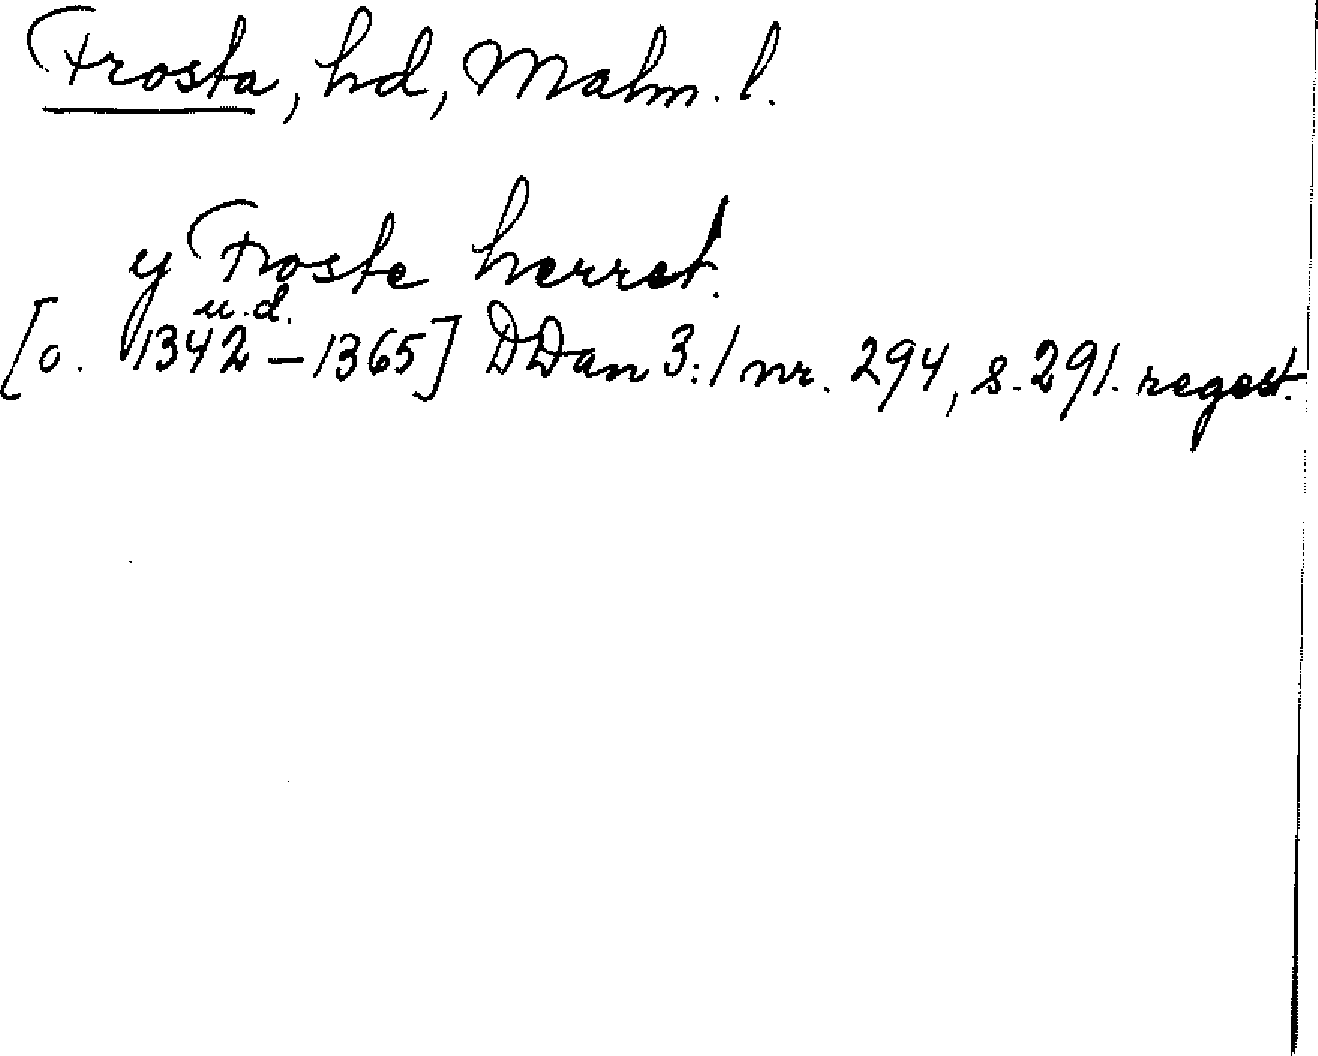 Frosta, hd, Malm. l.
y Froste herret.
u.d.
[o. 1342-1365] DDan 3:1 nr. 294, s. 291. regest.